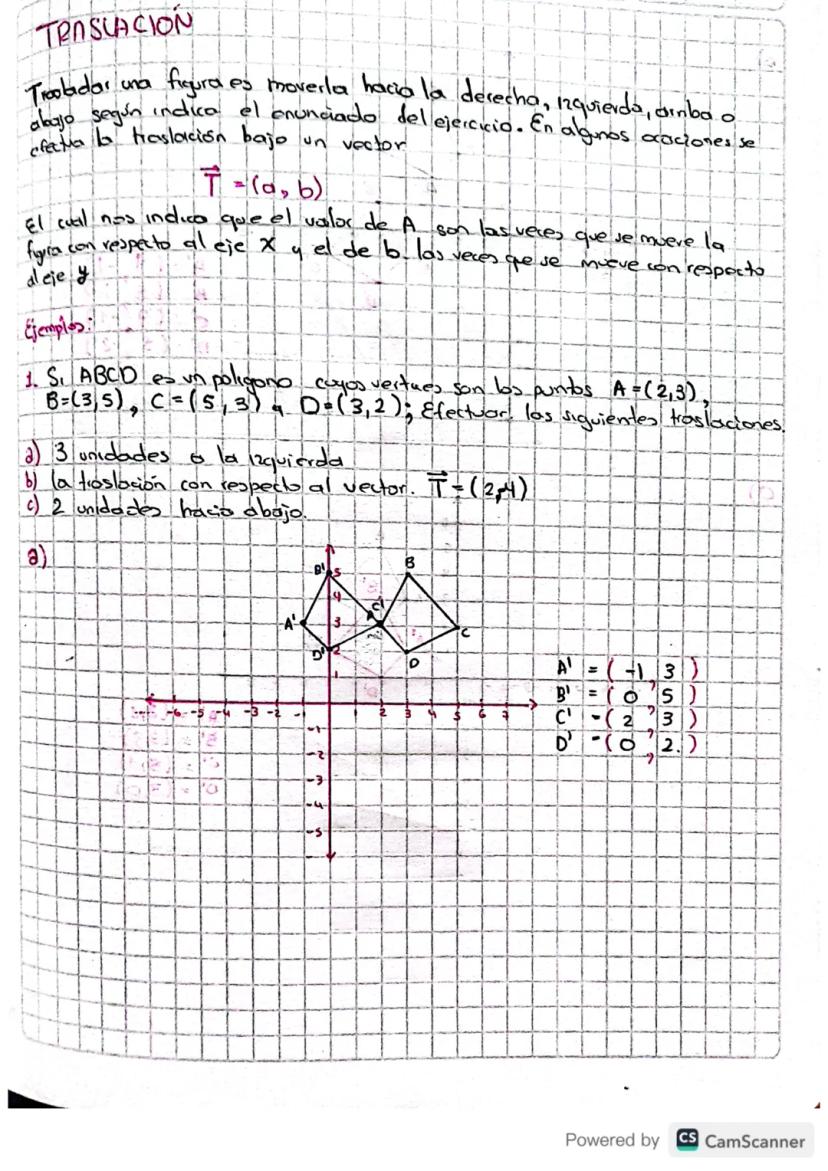 TRASLACIÓN
Trasladar una figura es moverla hacia la derecha, izquierda, arriba o
abajo según indica el enunciado del ejercicio. En algunos ocaciones se
efectua la traslación bajo un vector
T = (a, b)
El cual nos indica que el valor de A son las veces que se mueve la
figura con respecto al eje X y el de b las veces que se mueve con respecto
al eje y
Ejemplos:
1. Si ABCD es un poligono cuyos vertices son los puntos A = (2,3),
B=(3,5), C = (5,3) y D=(3,2); Efectuar las siguientes traslaciones.
a) 3 unidades a la izquierda
b) la traslación con respecto al vector. T = (2,-4)
c) 2 unidades hacia abajo.
a)
B' 5 B
4
A' 3 A C' C
D' 2 D
1
-6 -5 -4 -3 -2 -1 1 2 3 4 5 6 7
-1
-2
-3
-4
-5
A' = (-1, 3)
B' = (0, 5)
C' = (2, 3)
D' = (0, 2.)
Powered by CS CamScanner